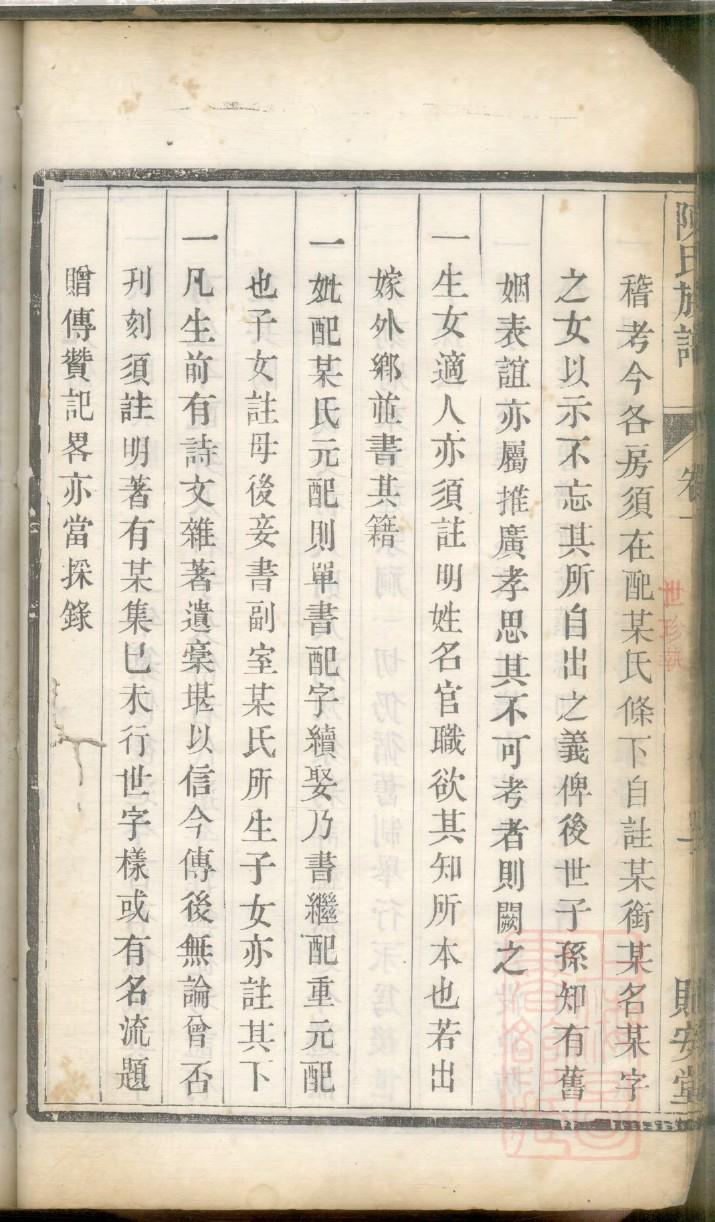 陳氏族譜
卷一
貽安堂
稽考今各房須在配某氏條下自註某銜某名某字
之女以示不忘其所自出之義俾後世子孫知有舊
姻表誼亦屬推廣孝思其不可考者則闕之
一生女適人亦須註明姓名官職欲其知所本也若出
嫁外鄉並書其籍
一妣配某氏元配則單書配字續娶乃書繼配重元配
也子女註母後妾書副室某氏所生子女亦註其下
一凡生前有詩文雜著遺稾堪以信今傳後無論曾否
刋刻須註明著有某集已未行世字樣或有名流題
贈傳贊記畧亦當採錄